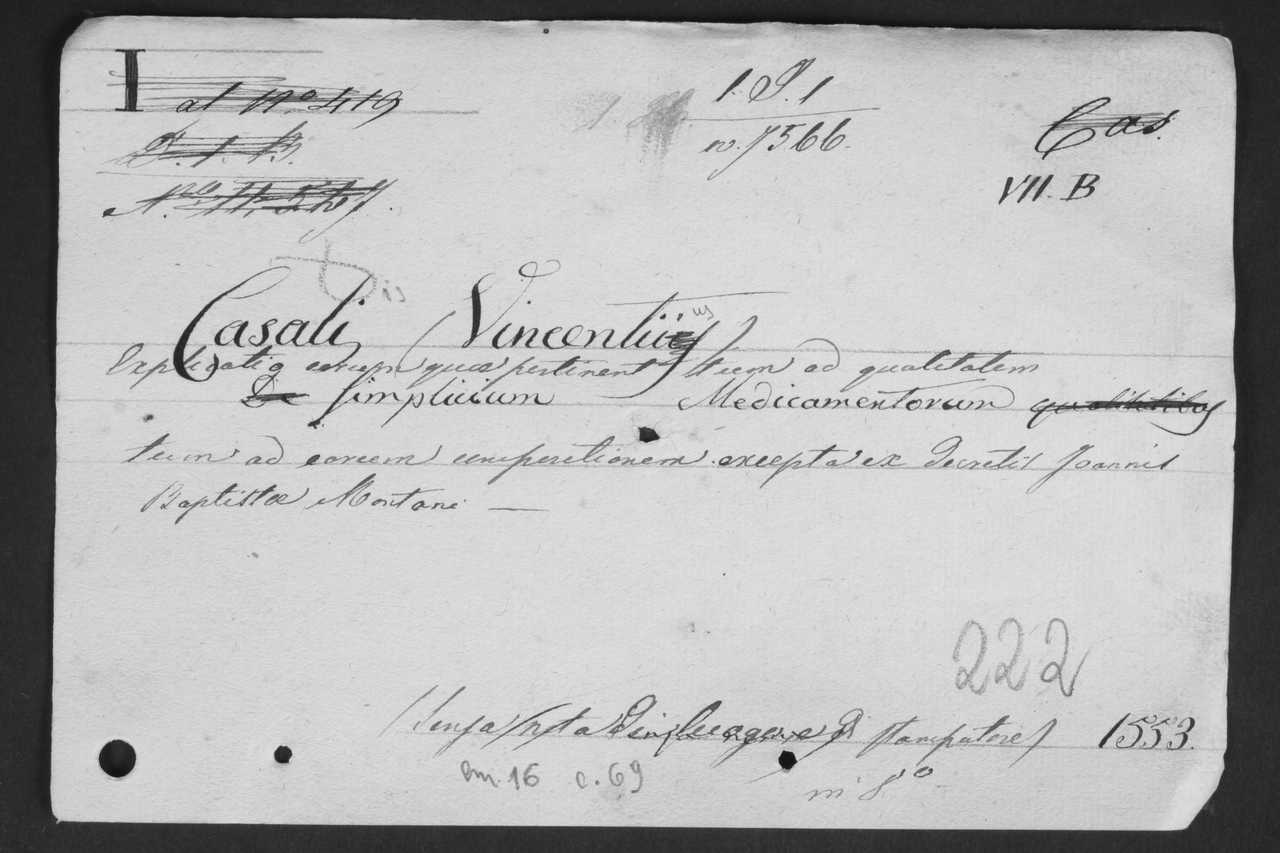 I
al Nº 419
1. J. 1
n. 7566.
Cas.
VII. B
Casali (Vincentius)
Explicatio eorum quae pertinent tum ad qualitatem
De simplicium Medicamentorum qualitatibus
tum ad eorum compositionem excepta ex Decretis Joannis
Baptistae Montani —
222
(senza nota di luogo e di stampatore) 1553.
cm. 16 c. 69
in 8º